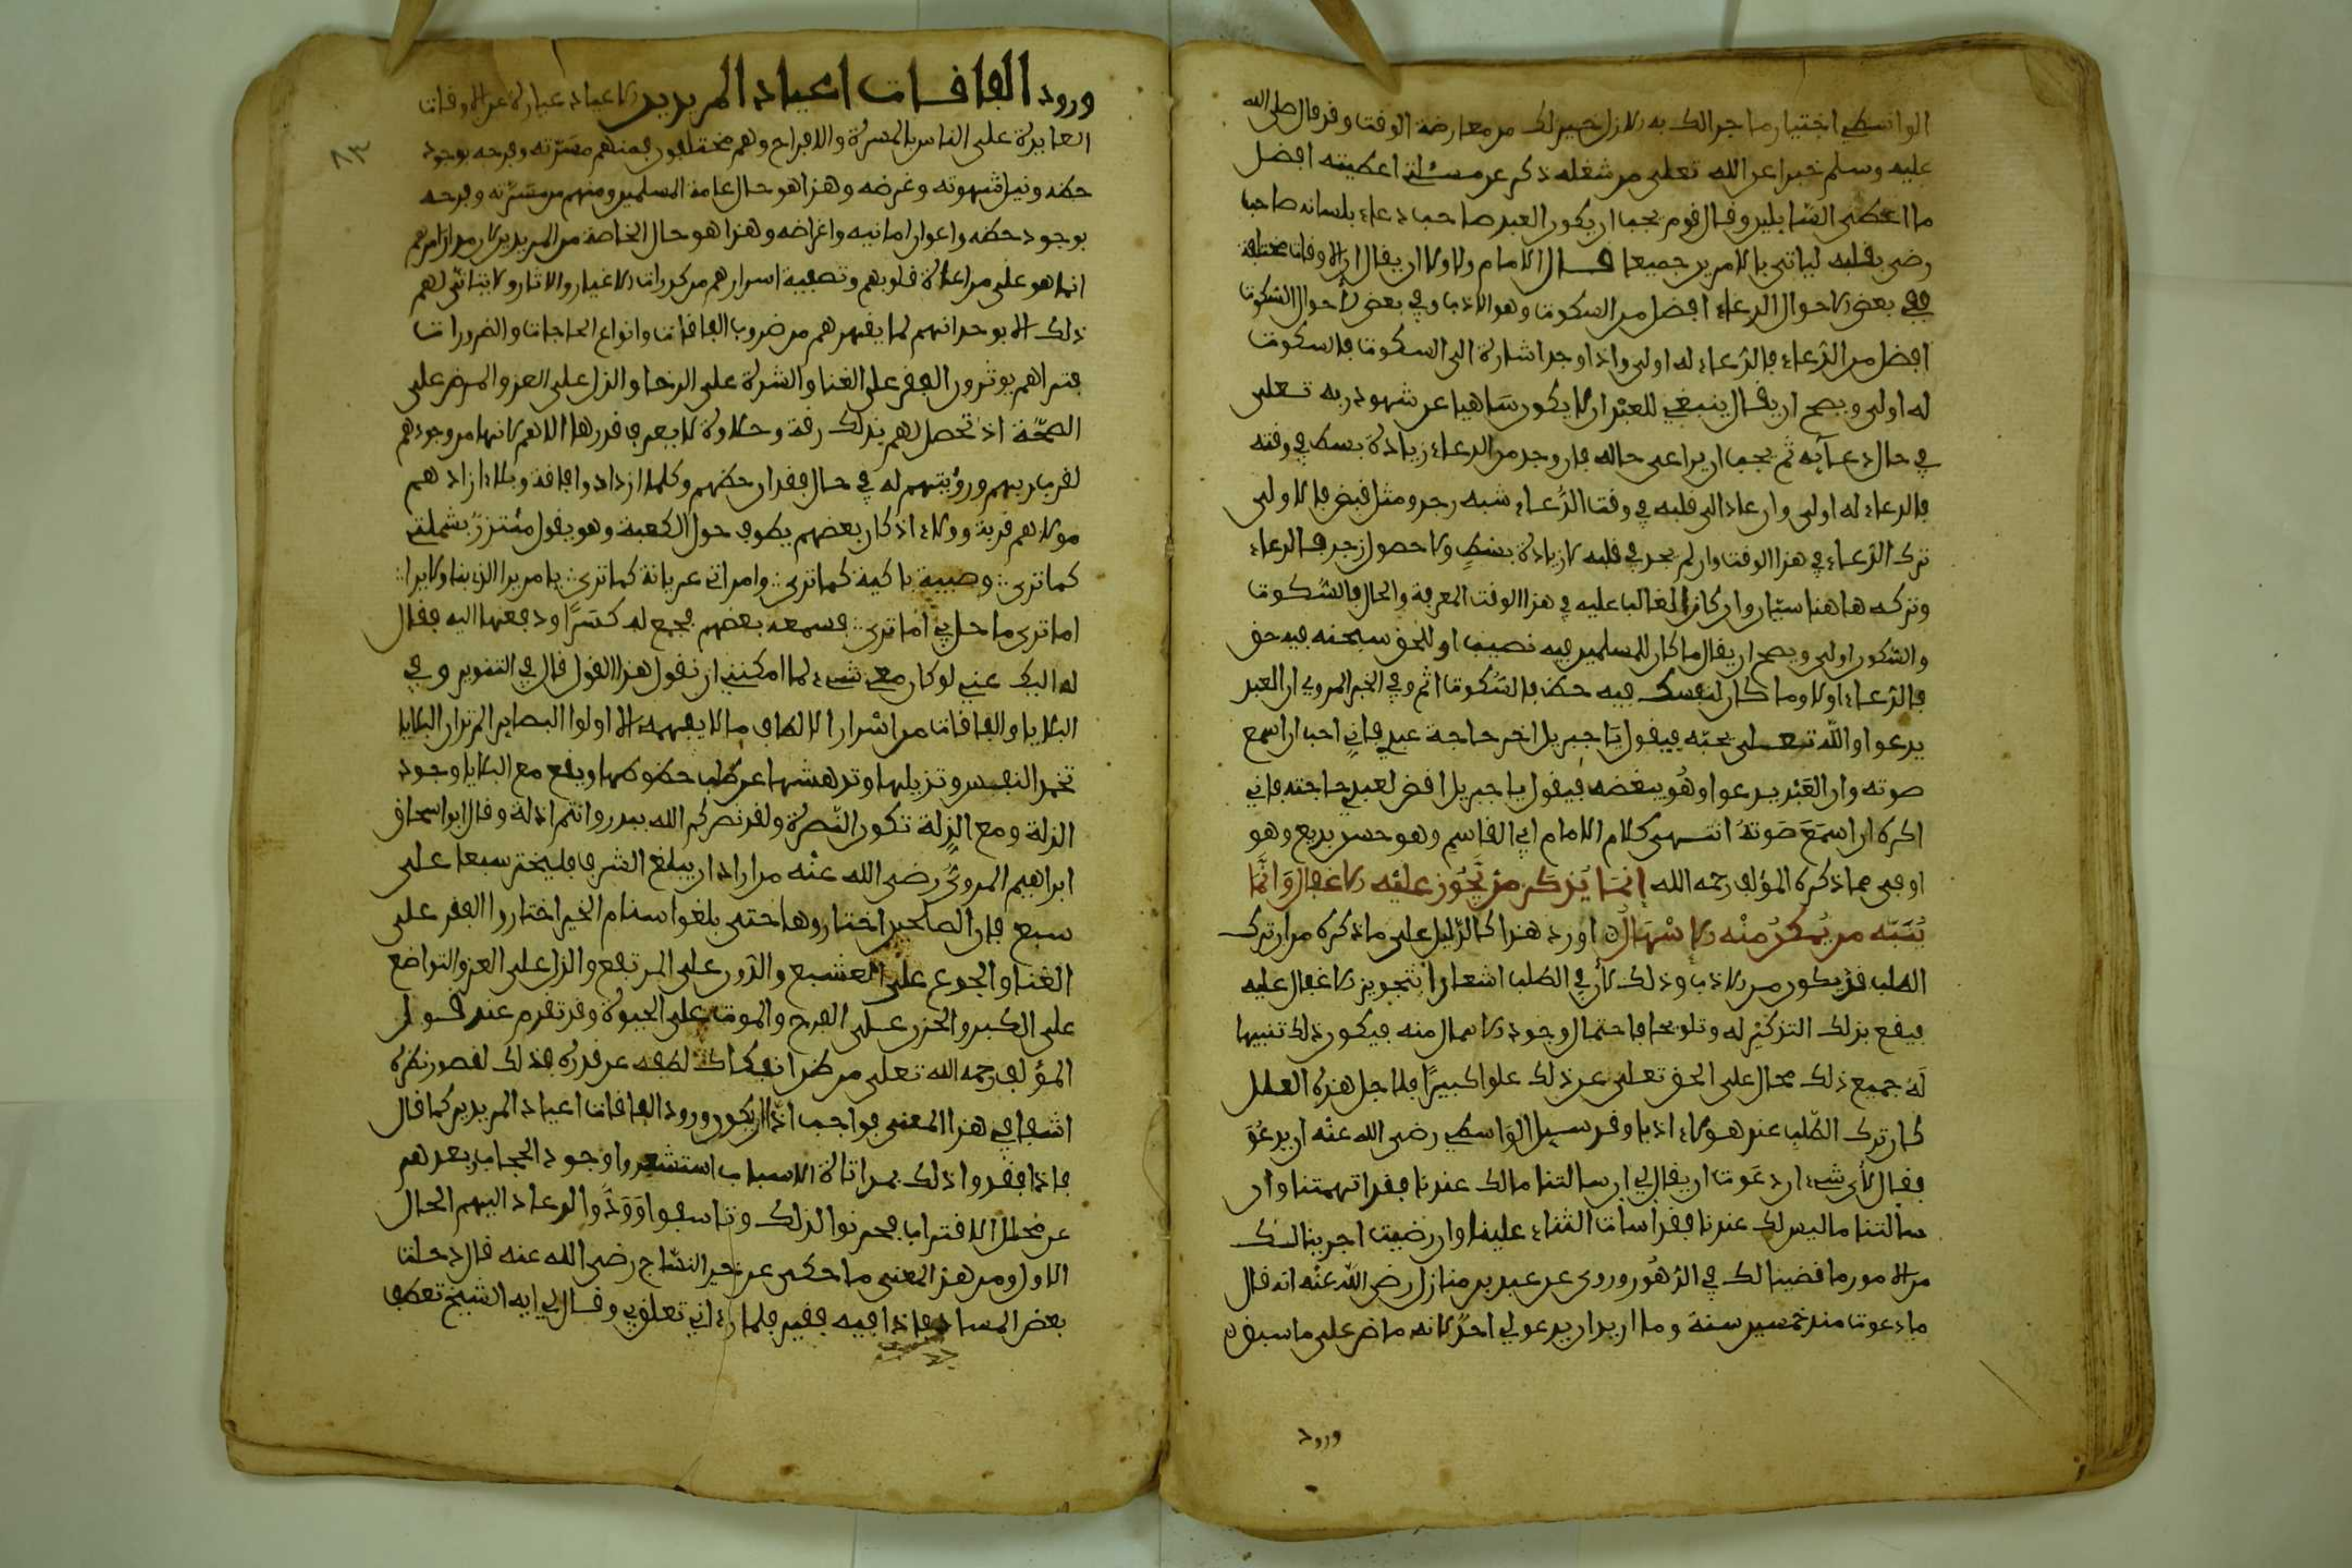 الواسطي اختيار ما جرا لك به الازل خير لك من معارضة الوقت وقد قال صلى الله
عليه وسلم خبرا عن الله تعلى من شغله ذكرى عن مسئلتي اعطيته افضل
ما اعطى السّايلين وقال قوم يجب ان يكون العبد صاحب دعاء بلسانه صاحب
رضى بقلبه لياتي بالامرين جميعا قال الامام ولاولا ان يقال ان الاوقات مختلفة
ففي بعض الاحوال الدعاء افضل من السكوت وهو الادب وفي بعض الاحوال السكوت
افضل من الدّعاء فالدّعاء له اولى واذا وجد اشارة الى السكوت فالسكوت
له اولى ويصح ان يقال ينبغي للعبد ان لا يكون ساهيا عن شهود ربه تعلى
في حال دعآئه ثم يجب ان يراعى حاله فان وجد من الدعاء زيادة بسط في وقته
فالدعاء له اولى وان عاد الى قلبه في وقت الدّعاء شبه زجر ومثل قبض فالاولى
ترك الدّعاء في هذا الوقت وان لم يجد في قلبه لا زيادة بسط ولا حصول زجر فالدعاء
وتركه هاهنا سيّان وان كان الغالب عليه في هذا الوقت المعرفة والحال فالسّكوت
والسّكون اولى ويصح ان يقال ما كان للمسلمين فيه نصيب او للحق سبحنه فيه حق
فالدّعاء اولا وما كان لنفسك فيه حظ فالسّكوت اثم وفي الخبر المروي ان العبد
يدعوا والله تعلى يحبّه فيقول يا جبريل اخر حاجة عبدي فاني احب ان اسمع
صوته وان العبْد يدعوا وهُو يبغضه فيقول يا جبريل اقض لعبدي حاجته فاني
اكره ان اسمَعَ صَوتَهُ انتهى كلام الامام ابي القاسم وهو حسن بديع وهو
اوفى مما ذكره المؤلف رحمه الله إنمَا يُذكر من يَّجُوز عليْه الاغفال وَانمَّا
يُنَبَّه من يُمكنُ منْه الإِسْهَالُ اورد هذا كالدّليل على ما ذكره من ان ترك
الطلب قد يكون من الادب وذلك لأن في الطلب اشعارا بتجويز الاغفال عليه
فيقع بذلك التذكيْر له وتلويحا باحتمال وجود الاهمال منه فيكون ذلك تنبيها
لَهُ جميع ذلك محال على الحق تعلى عن ذلك علوا كبيرًا فلاجل هذه العلل
كان ترك الطّلب عند هولاء ادبا وقد سيل الوَاسطي رضى الله عنْه ان يدعُوَ
فقال لأى شىء ان دعَوت ان يقال لي ان سالتنا ما لك عندنا فقد اتهمتنا وان
سالتنا ما ليس لك عندنا فقد اسات الثناء علينا وان رضيت اجرينا لك
من الامور ما قضينا لك في الدّهُور وروى عن عبد بن منازل رضى الله عنْه انه قال
ما دعوت منذ خمسين سنة وما اريد ان يدعو لي احدٌ لانه ماض على ما سبق
ورود
ورود الفاقات اعياد المريدين الاعياد عبارة عن الاوقات
العايدة على الناس بالمسرة والافراح وهم مختلفون فمنهم من مسرّته وفرحه بوجود
حظه ونيل شهوته وغرضه وهذا هو حال عامة المسلمين ومنهم من مسرّته وفرحه
بوجود حظه واعواز امانيه واغراضه وهذا هو حال الخاصة من المريدين لان مدار امرهم
انما هو على مراعاة قلوبهم وتصفية اسرارهم من كدورات الاغيار والاثار ولا يتاتّى لهم
ذلك الا بوحدانهم لما يقهرهم من ضروب الفاقات وانواع الحاجات والضرورات
فتراهم يوثرون الفقر على الغنا والشدة على الرخا والذل على العز والمرض على
الصحّة اذ تحصل لهم بذلك رقة وحلاوة لا يعرف قدرها الا هم لانها من وجودهم
لقرب ربهم ورؤيتهم له في حال فقدان حظهم وكلما ازدادوا فاقة وبلاء ازادهم
مولاهم قربة وولاء اذ كان بعضهم يطوف حول الكعبة وهو يقول متّزرٌ بشملتي
كما ترى ∴ وصبية باكية كما ترى ∴ وامراتي عريانة كما ترى ∴ يا من يرا الذي بنا ولا يرا ∴
اما ترى ما حل بي اما ترى ∴ فسمعه بعضهم فجمع له كسَرًا ودفعها اليه فقال
له اليك عني لو كان معي شىء لما امكنني ان نقول هذا القول قال في التنوير وفي
البلايا والفاقات من اسْرار الالطاف ما لا يفهمه الا اولوا البصاير الم تر ان البلايا
تخمد النفس وتزيلها وتدهشها عن طلب حظوظها ويقع مع البلايا وجود
الذلة ومع الذلة تكون النّصرة ولقد نصركم الله ببدر وانتم اذلة وقال ابو اسحاق
ابراهيم الهروىُّ رضى الله عنْه من اراد ان يبلغ الشرف فليختر سبعا على
سبع فان الصالحين اختاروها حتى بلغوا سنام الخير اختاروا الفقر على
الغنا والجوع على الشبع والدّون على المرتفع والذل على العز والتواضع
على الكبر والحزن على الفرح والموت على الحيوة وقد تقدم عند قول
المؤلف رحمه الله تعلى من ظن انفكاك لطفه عن قدره فذلك لقصور نظره
اشفا في هذا المعنى فواجب اذّا ان يكون ورود الفاقات اعياد المريدين كما قال
فاذا فقدوا ذلك بمواتاة الاسباب استشعروا وجود الحجاب بعدهم
عن محلّ الاقتراب فحزنوا لذلك وتاسفوا وَوَدُّوا لو عاد اليهم الحال
الاول ومن هذا المعنى ما حكى عن خير النسّاج رضى الله عنه قال دخلت
بعض المساجد فاذا فيه فقير فلما رءاني تعلق بي وقال لي ايه الشيخ تعطف
٨٣